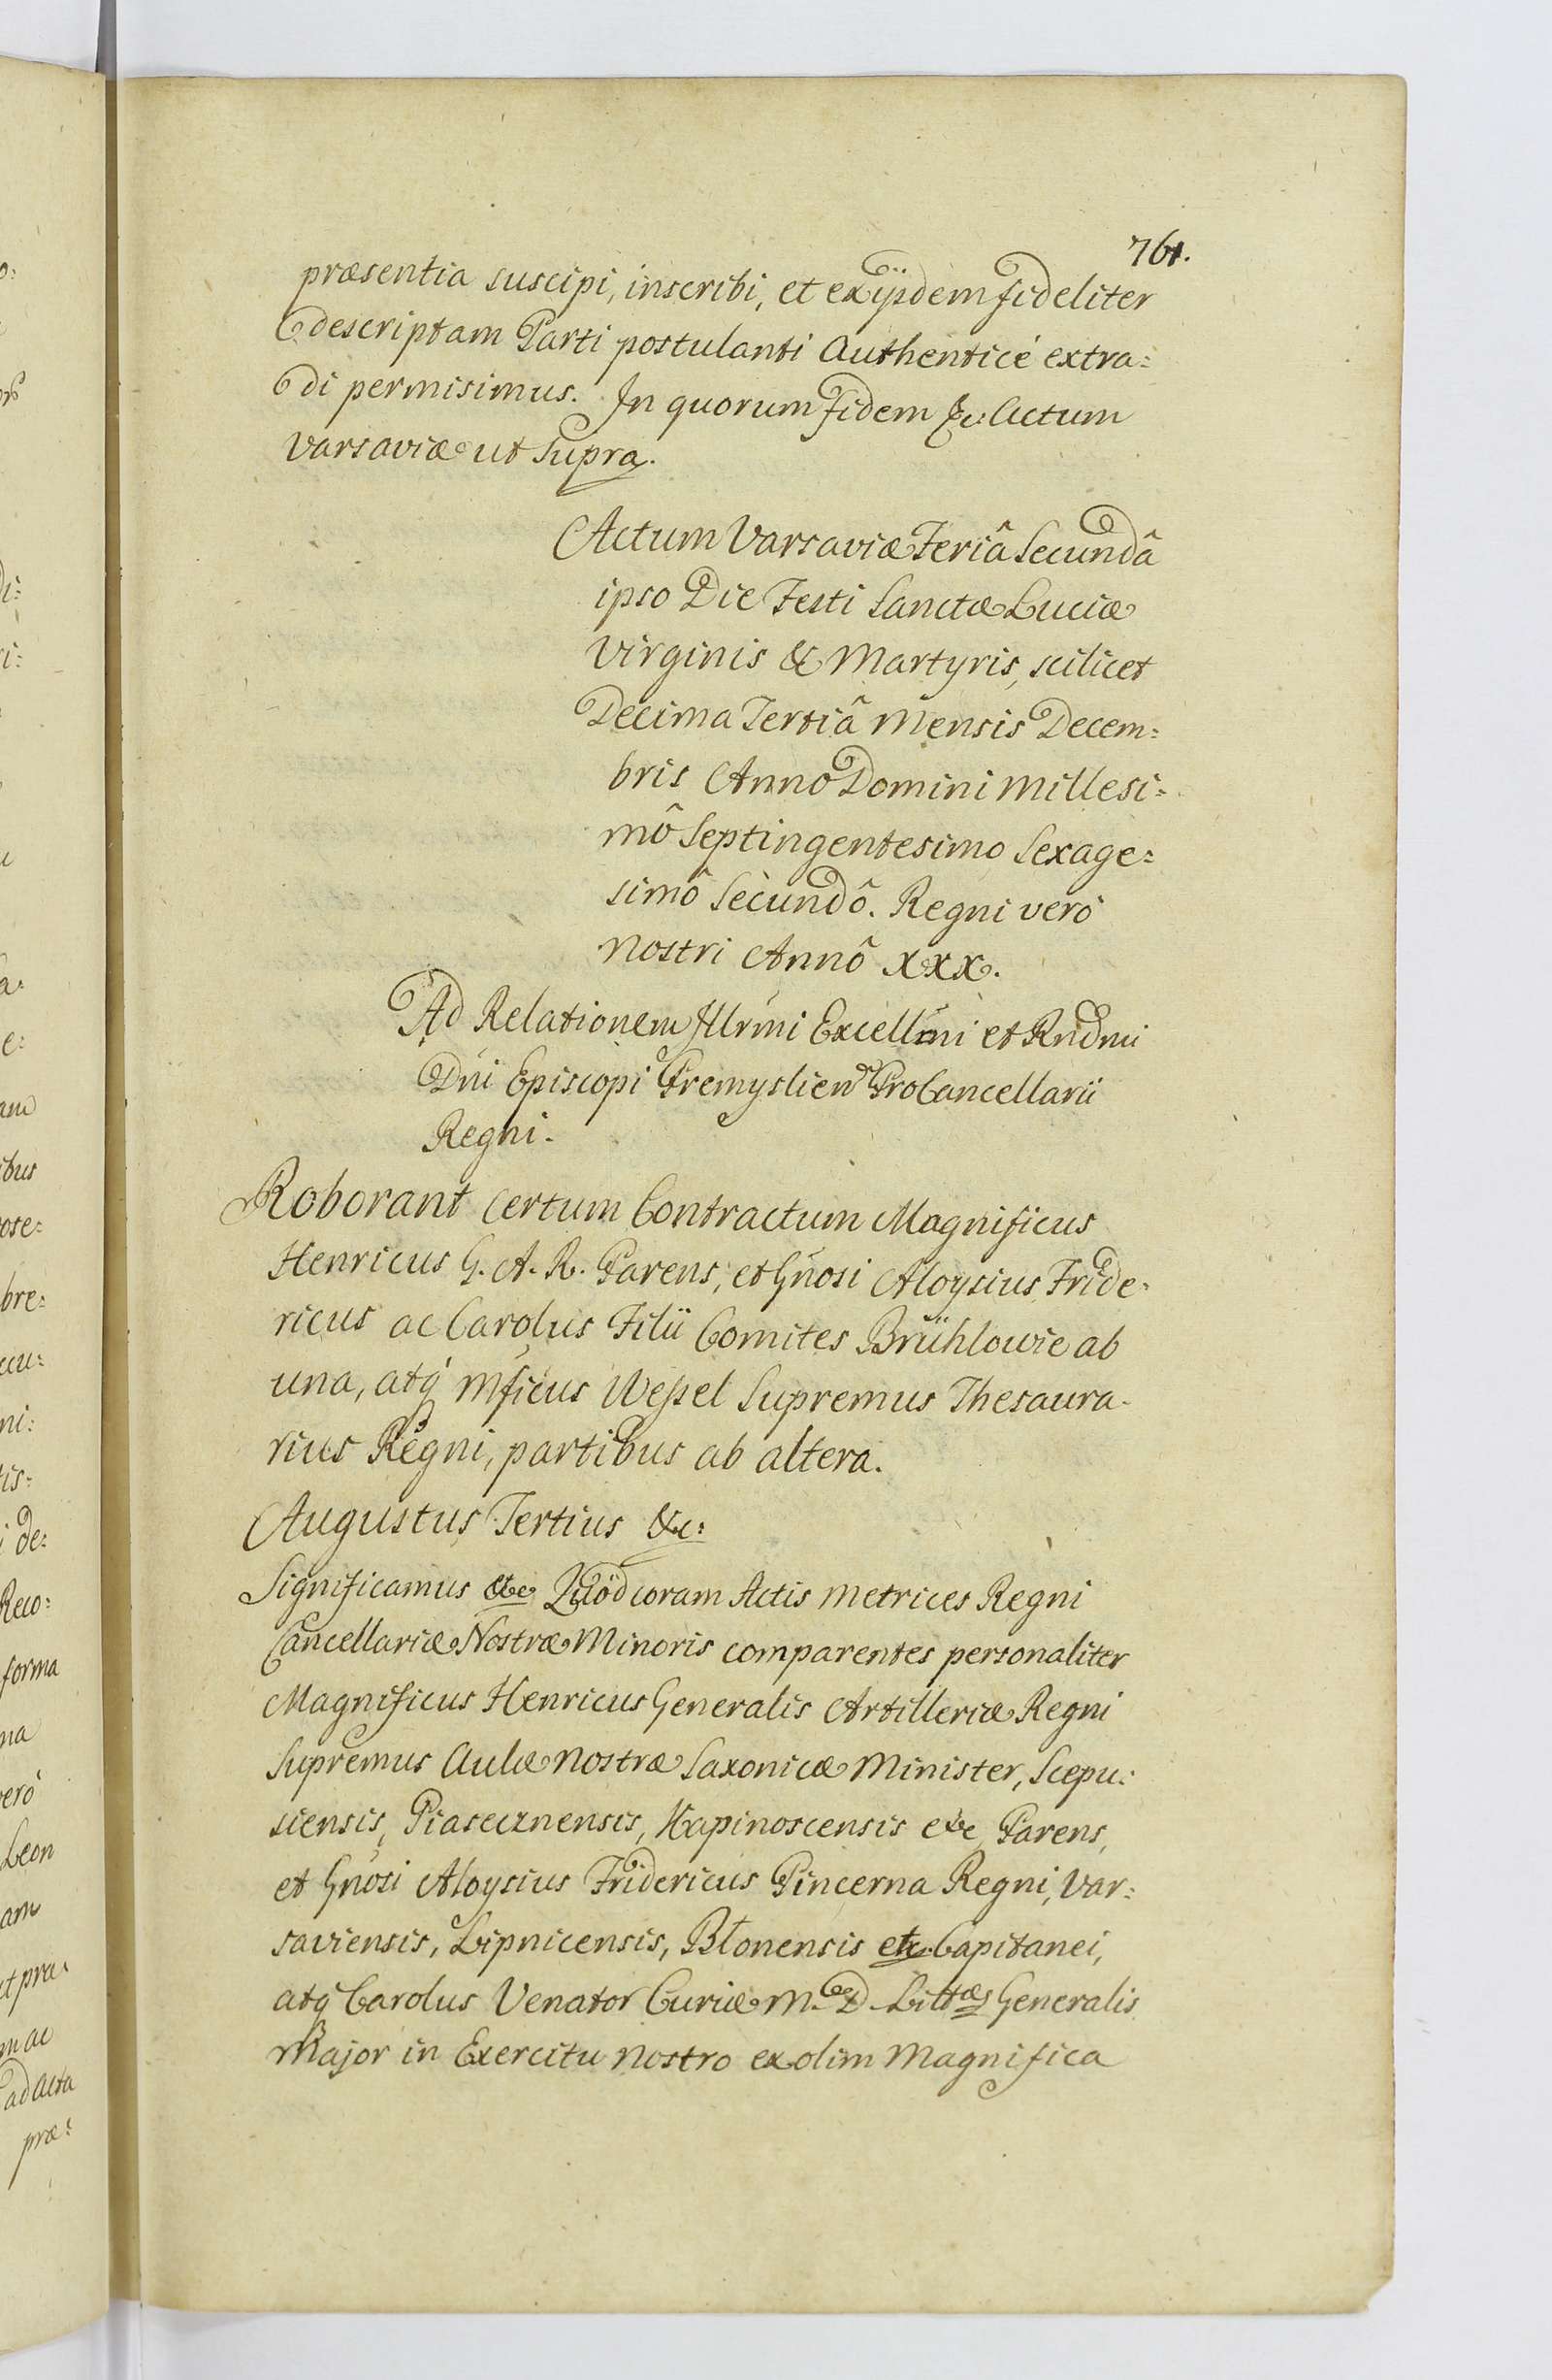 761.
præsentia suscipi, inscribi, et ex ijsdem fideliter
descriptam Parti postulanti Authenticé extra:
di permisimus. In quorum fidem &c: Actum
Varsaviæ ut Supra.
Actum Varsaviæ Feriâ Secundâ
ipso Die Festi Sanctæ Luciæ
Virginis & Martyris, scilicet
Decima Tertiâ Mensis Decem:
bris Anno Domini Millesi:
mô Septingentesimo Sexage:
simô Secundô. Regni verò
Nostri Annô XXX.
Ad Relationem Illrmi Excellmi et Rndmi
Dni Episcopi Premyslien ProCancellarii
Regni.
Roborant certum Contractum Magnificus
Henricus G. A. R. Parens, et Gnosi Aloysius Fride-
ricus ac Carolus Filii Comites Brühlowie ab
una, atq Mficus Wessel Supremus Thesaura-
rius Regni, partibus ab altera.
Augustus Tertius &c:
Significamus &c Quod coram Actis Metrices Regni
Cancellariæ Nostræ Minoris comparentes personaliter
Magnificus Henricus Generalis Artilleriæ Regni
Supremus Aulæ Nostræ Saxonicæ Minister, Scepu:
siensis, Piasecznensis, Kapinoscensis etc Parens,
et Gnosi Aloysius Fridericus Pincerna Regni, Var:
saviensis, Lipnicensis, Błonensis etc. Capitanei,
atq Carolus Venator Curiæ M. D. Littæ Generalis
Major in Exercitu Nostro ex olim Magnifica